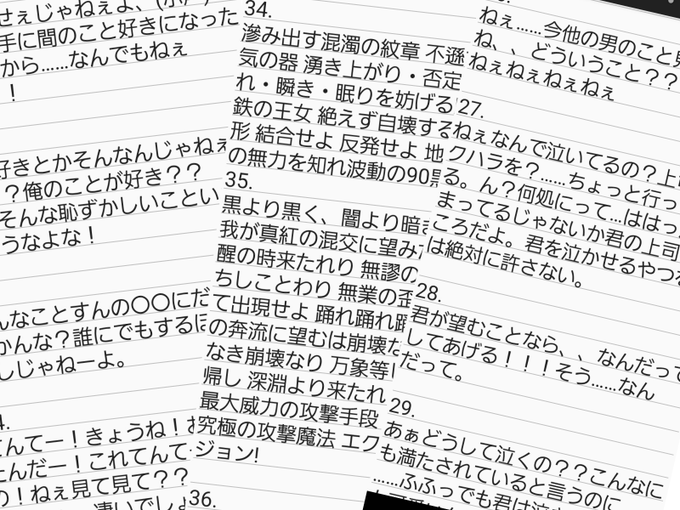 せぇじゃねぇよ、
手に間のこと好きになった
から……なんでもねぇ
！
好きとかそんなんじゃねぇ
？俺のことが好き？？
そんな恥ずかしいことい
うなよな！
んなことすんの〇〇にだ
かんな？誰にでもするほ
しじゃねーよ。
てんてー！きょうね！お
たんだー！これてんて
の！ねぇ見て見て？？
凄いでしょ
34.
滲み出す混濁の紋章 不遜
気の器 湧き上がり・否定
れ・瞬き・眠りを妨げる
鉄の王女 絶えず自壊する
形 結合せよ 反発せよ 地
の無力を知れ波動の90
35.
黒より黒く、闇より暗き
我が真紅の混交に望み
醒の時来たれり 無謬の
ちしことわり 無業の歪
て出現せよ 踊れ踊れ踊
の奔流に望むは崩壊な
なき崩壊なり 万象等
帰し 深淵より来たれ
最大威力の攻撃手段
究極の攻撃魔法 エク
ジョン!
36.
ねぇ……今他の男のこと見
ね、、どういうこと？？
ねぇねぇねぇねぇ
27.
ねぇなんで泣いてるの？上
クハラを？……ちょっと行っ
る。ん？何処にって…ははっ
まってるじゃないか君の上司
ころだよ。君を泣かせるやつ
は絶対に許さない。
28.
君が望むことなら、、なんだって
してあげる！！！そう……なん
だって。
29.
あぁどうして泣くの？？こんなに
も満たされていると言うのに
……ふふっでも君は泣